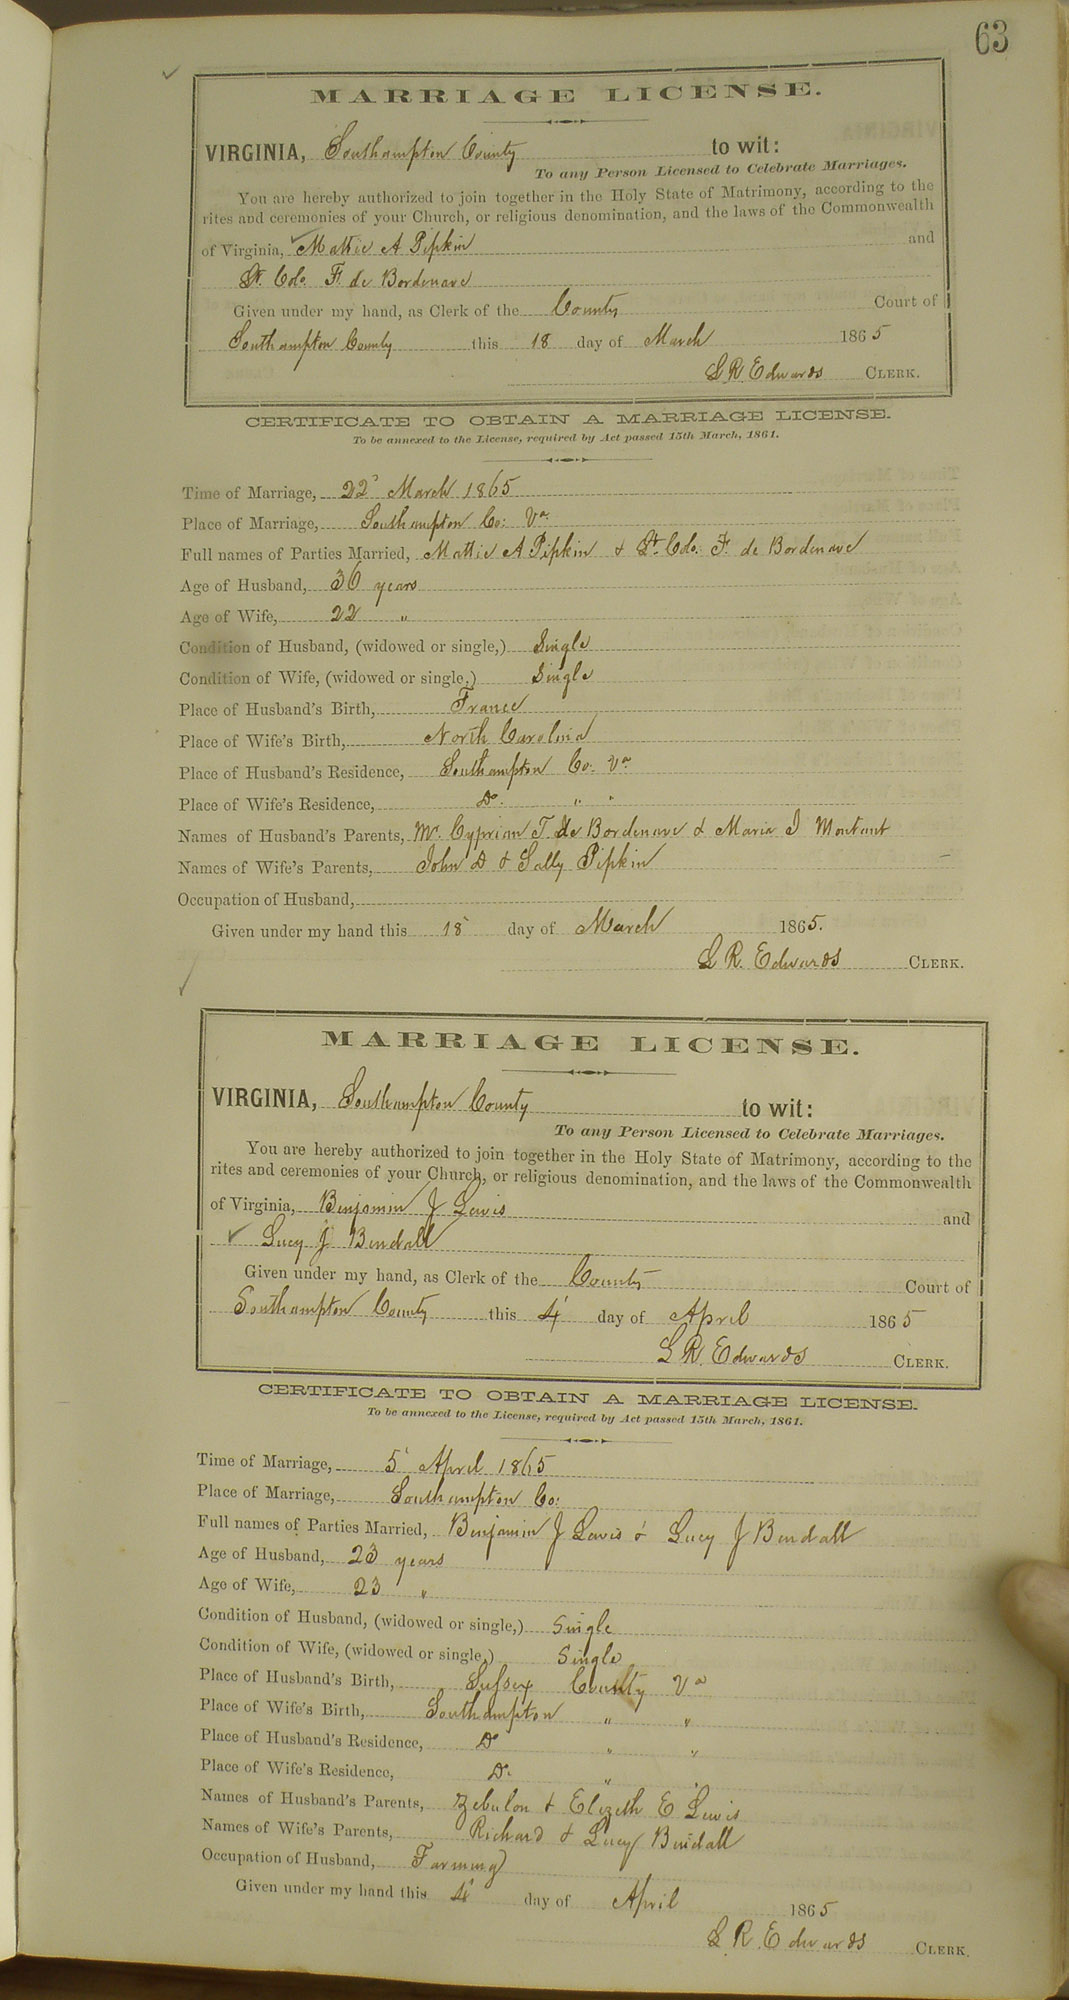 63
MARRIAGE LICENSE.
VIRGINIA, Southampton County to wit:
To any Person Licensed to Celebrate Marriages.
You are hereby authorized to join together in the Holy State of Matrimony, according to the
rites and ceremonies of your Church, or religious denomination, and the laws of the Commonwealth
of Virginia, Mattie A Pipkin and
Lt. Colo. F. de Bordenave
Given under my hand, as Clerk of the County Court of
Southampton County this 18 day of March 1865
L R Edwards CLERK.
CERTIFICATE TO OBTAIN A MARRIAGE LICENSE.
To be annexed to the License, required by Act passed 15th March, 1861.
Time of Marriage, 22' March 1865
Place of Marriage, Southampton Co: Va.
Full names of Parties Married, Mattie A Pipkin & Lt. Colo. F. de Bordenave
Age of Husband, 36 years
Age of Wife, 22 "
Condition of Husband, (widowed or single,) Single
Condition of Wife, (widowed or single,) Single
Place of Husband's Birth, France
Place of Wife's Birth, North Carolina
Place of Husband's Residence, Southampton Co: Va
Place of Wife's Residence, Do. " "
Names of Husband's Parents, Mr. Cyprian T. de Bordenave & Maria I Montant
Names of Wife's Parents, John D & Sally Pipkin
Occupation of Husband,
Given under my hand this 18' day of March 1865.
L R. Edwards CLERK.
MARRIAGE LICENSE.
VIRGINIA, Southampton County to wit:
To any Person Licensed to Celebrate Marriages.
You are hereby authorized to join together in the Holy State of Matrimony, according to the
rites and ceremonies of your Church, or religious denomination, and the laws of the Commonwealth
of Virginia, Benjamin J Lewis and
Lucy J Bendall
Given under my hand, as Clerk of the County Court of
Southampton County this 4' day of April 1865
L R. Edwards CLERK.
CERTIFICATE TO OBTAIN A MARRIAGE LICENSE.
To be annexed to the License, required by Act passed 15th March, 1861.
Time of Marriage, 5' April 1865
Place of Marriage, Southampton Co:
Full names of Parties Married, Benjamin J Lewis & Lucy J Bendall
Age of Husband, 23 years
Age of Wife, 23 "
Condition of Husband, (widowed or single,) Single
Condition of Wife, (widowed or single,) Single
Place of Husband's Birth, Sussex County Va
Place of Wife's Birth, Southampton " "
Place of Husband's Residence, Do " "
Place of Wife's Residence, Do. " "
Names of Husband's Parents, Zebulon & Elizeth E Lewis
Names of Wife's Parents, Richard & Lucy Bendall
Occupation of Husband, Farming
Given under my hand this 4' day of April 1865
L. R. Edwards CLERK.